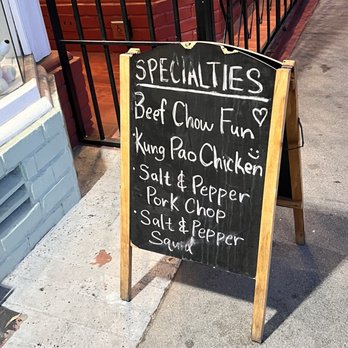 SPECIALTIES
Beef Chow Fun ♡
· Kung Pao Chicken
· Salt & Pepper
Pork Chop
· Salt & Pepper
Squid